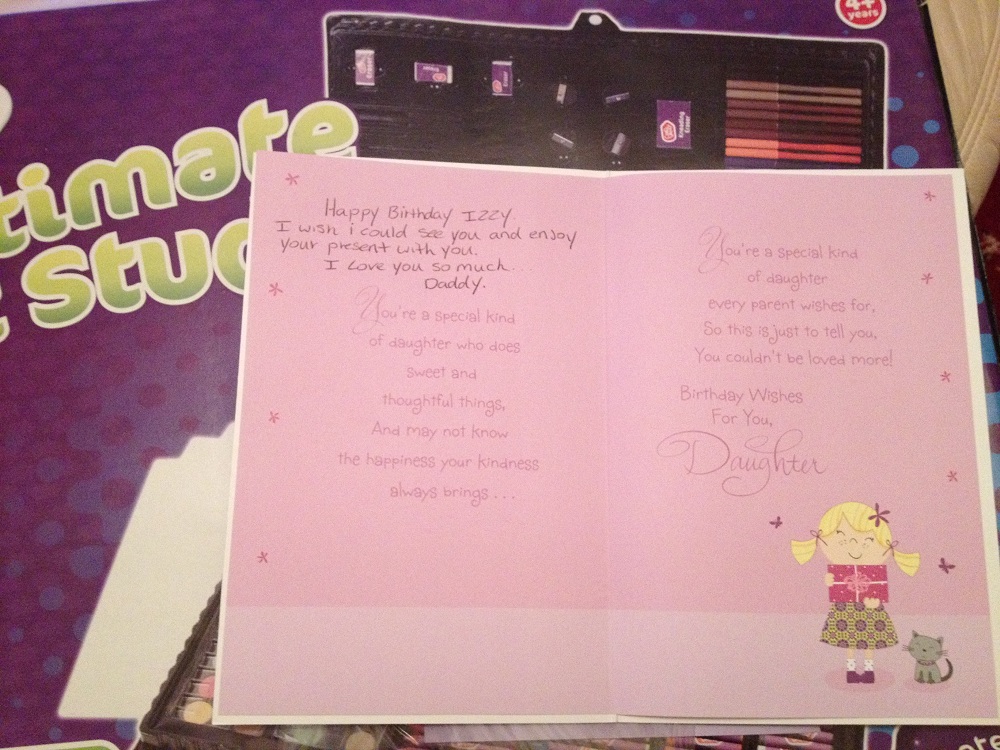 4+
years
timate
stud
Eraser
Eraser
Kneading
Eraser
Happy Birthday Izzy.
I wish i could see you and enjoy
your present with you.
I Love you so much...
Daddy.
You're a special kind
of daughter who does
sweet and
thoughtful things,
And may not know
the happiness your kindness
always brings . . .
You're a special kind
of daughter
every parent wishes for,
So this is just to tell you,
You couldn't be loved more!
Birthday Wishes
For You,
Daughter